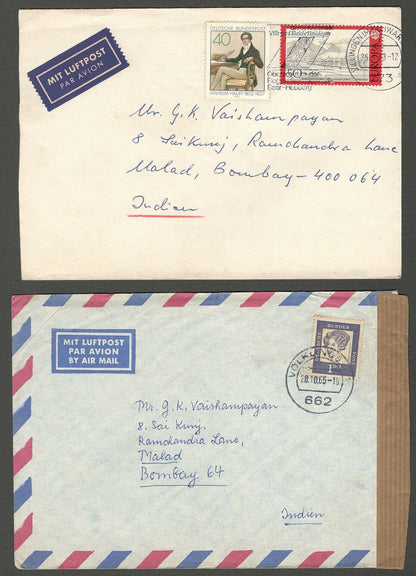 MIT LUFTPOST
PAR AVION
DEUTSCHE BUNDESPOST
40
WILHELM HAUFF 1802-1827
EUROPA
Mr. G. K. Vaishampayan
8 Saikunj, Ramchandra Lane
Malad, Bombay-400 064
Indien
MIT LUFTPOST
PAR AVION
BY AIR MAIL
VÖLKLINGEN
20.10.65-16
662
Mr. G. K. Vaishampayan
8. Sai Kunj.
Ramchandra Lane,
Malad
Bombay 64
Indien